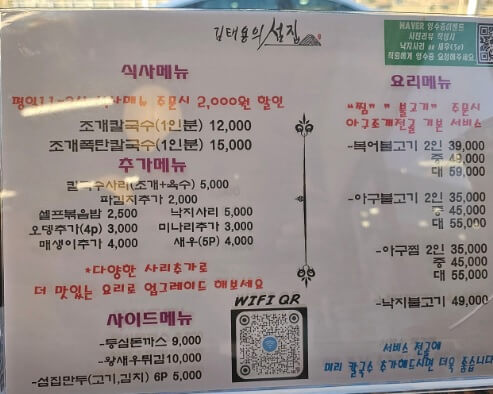 김태용의 섬집
NAVER 영수증이벤트
시진리뷰 작성시
낙지사리 or 새우(5p)
직원에게 영수증 요청해주세요
식사메뉴
주문시 2,000원 할인
조개칼국수(1인분) 12,000
조개폭탄칼국수(1인분) 15,000
추가메뉴
칼국수사리(조개+육수) 5,000
파김치추가 2,000
셀프볶음밥 2,500 낙지사리 5,000
오뎅추가(4p) 3,000 미나리추가 3,000
매생이추가 4,000 새우(5P) 4,000
*다양한 사리추가로
더 맛있는 요리로 업그레이드 해보세요
사이드메뉴
-등심돈까스 9,000
-왕새우튀김10,000
-섬집만두(고기,김치) 6P 5,000
WIFI QR
요리메뉴
"찜" "불고기" 주문시
아구조개전골 기본 서비스
-복어불고기 2인 39,000
중 49,000
대 59,000
-아구불고기 2인 35,000
중 45,000
대 55,000
-아구찜 2인 35,000
중 45,000
대 55,000
-낙지불고기 49,000
서비스 전골에
미리 칼국수 추가해드시면 더욱 좋습니다